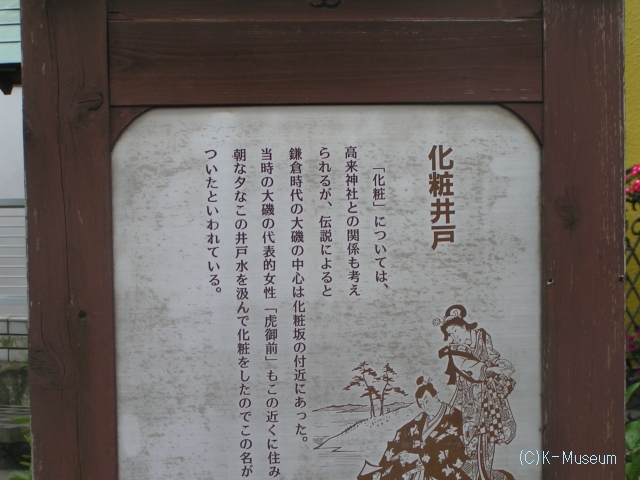 化粧井戸
「化粧」については、
高来神社との関係も考え
られるが、伝説によると
鎌倉時代の大磯の中心は化粧坂の付近にあった。
当時の大磯の代表的女性「虎御前」もこの近くに住み
朝な夕なこの井戸水を汲んで化粧をしたのでこの名が
ついたといわれている。
(C)K-Museum